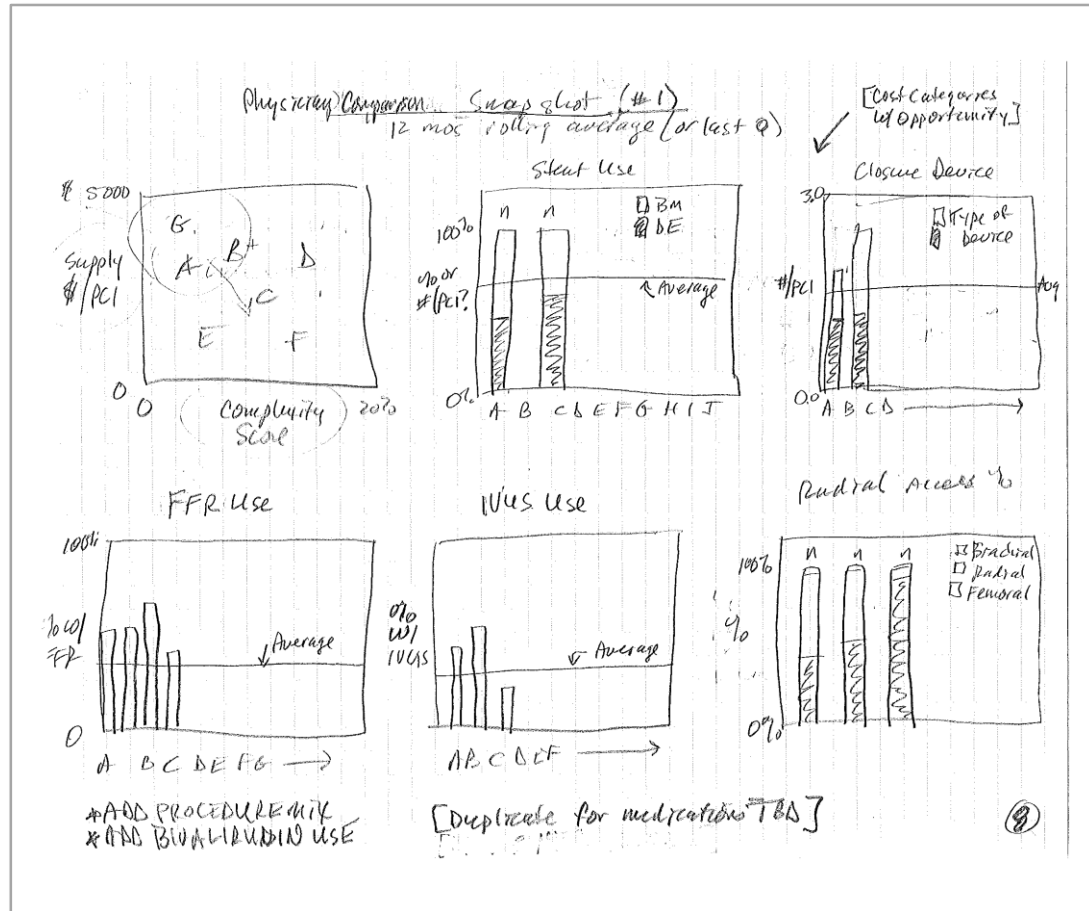 Physician Comparison Snapshot (#1)
12 mos rolling average (or last Q)
[Cost Categories
w/ Opportunity]
$ 5000
Supply
$/PCI
0
0
Complexity
Score
20%
G
A
B+
D
C
E
F
Stent Use
n n
BM
DE
100%
% or
#/PCI?
Average
0%
A B C D E F G H I J
Closure Device
3.0
Type of
Device
#/PCI
Avg
0.0
A B C D
FFR Use
100%
% w/
FFR
Average
0
A B C D E F G
IVUS Use
%
w/
IVUS
Average
A B C D E F
Radial Access %
n n n
Bradial
Radial
Femoral
100%
%
0%
*ADD PROCEDURE MIX
*ADD BIVALIRUDIN USE
[Duplicate for medications TBD]
8